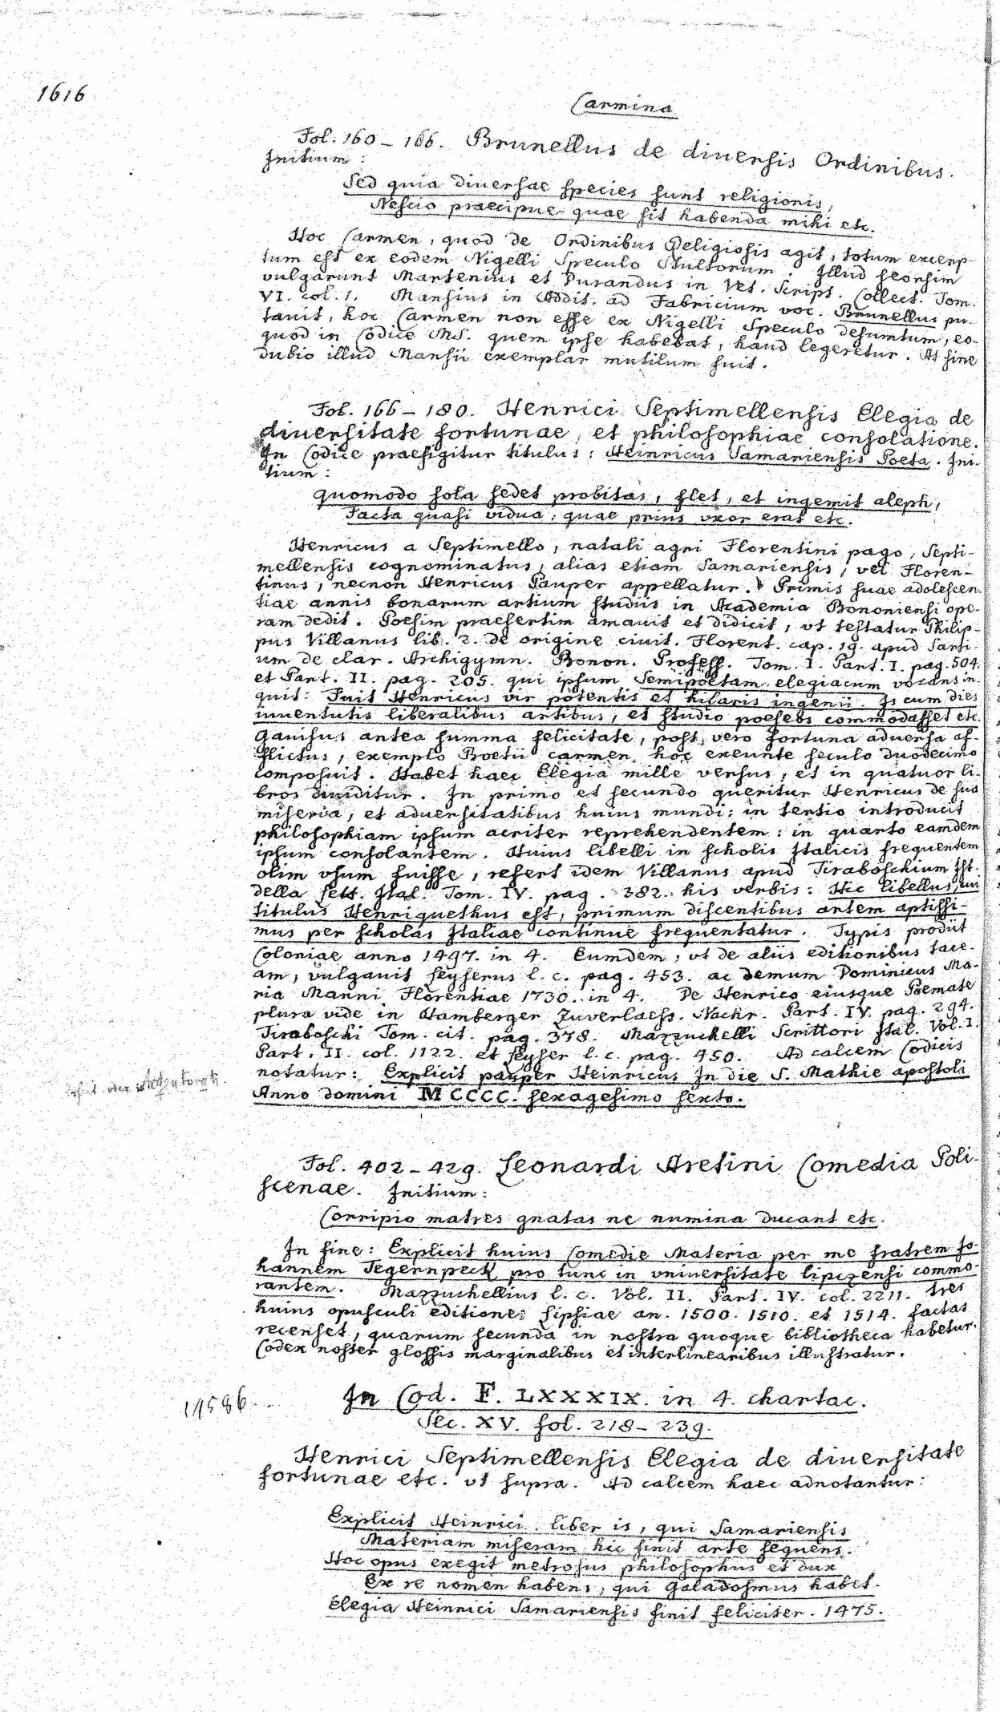 1616
Carmina
Fol. 160 – 166. Brunellus de diuersis Ordinibus.
Initium:
Sed quia diuersae species sunt religionis,
Nescio praecipue quae sit habenda mihi etc.
Hoc Carmen, quod de Ordinibus Religiosis agit, totum excerp-
tum est ex eodem Nigelli Speculo Stultorum. Illud seorsim
vulgarunt Martenius et Durandus in Vet. Script. Collect. Tom.
VI. col. 1. Mansius in Addit. ad Fabricium voc. Brunellus pu-
tauit, hoc Carmen non esse ex Nigelli Speculo desumtum, eo-
quod in Codice MS. quem ipse habebat, haud legeretur. At sine
dubio illud Mansii exemplar mutilum fuit.
Fol. 166 – 180. Henrici Septimellensis Elegia de
diuersitate fortunae, et philosophiae consolatione.
In Codice praefigitur titulus: Heinricus Samariensis Poeta. Ini-
tium:
quomodo sola sedet probitas, flet, et ingemit aleph,
Facta quasi vidua, quae prius vxor erat etc.
Henricus a Septimello, natali agri Florentini pago, Septi-
mellensis cognominatus, alias etiam Samariensis, vel Floren-
tinus, necnon Henricus Pauper appellatur. Primis suae adolescen-
tiae annis bonarum artium studiis in Academia Bononiensi ope-
ram dedit. Poesim praesertim amauit et didicit, vt testatur Philip-
pus Villanus lib. 2. de origine ciuit. Florent. cap. 19. apud Sarti-
um de clar. Archigymn. Bonon. Profess. Tom. I. Part. I. pag. 504.
et Part. II. pag. 205. qui ipsum Semipoetam elegiacum vocans in-
quit: Fuit Henricus vir potentis et hilaris ingenii. Is cum dies
iuuentutis liberalibus artibus, et studio poeseos commodasset etc.
Gauisus antea summa felicitate, post vero fortuna aduersa af-
flictus, exemplo Boetii carmen hoc exeunte seculo duodecimo
composuit. Habet haec Elegia mille versus, et in quatuor li-
bros diuiditur. In primo et secundo queritur Henricus de sua
miseria, et aduersitatibus huius mundi: in tertio introducit
philosophiam ipsum acriter reprehendentem: in quarto eamdem
ipsum consolantem. Huius libelli in scholis Italicis frequentem
olim vsum fuisse, refert idem Villanus apud Tiraboschium Ist.
della Lett. Ital. Tom. IV. pag. 382. his verbis: Hic libellus, cui
titulus Henriguethus est, primum discentibus artem aptissi-
mus per scholas Italiae continue frequentatur. Typis prodiit
Coloniae anno 1497. in 4. Eumdem, vt de aliis editionibus tace-
am, vulgauit Leyserus l. c. pag. 453. ac demum Dominicus Ma-
ria Manni Florentiae 1730. in 4. De Henrico eiusque Poemate
plura vide in Hamberger Zuverlaess. Nachr. Part. IV. pag. 294.
Tiraboschi Tom. cit. pag. 378. Mazzuchelli Scrittori Ital. Vol. I.
Part. II. col. 1122. et Leyser l. c. pag. 450. Ad calcem Codicis
notatur: Explicit pauper Heinricus In die S. Mathie apostoli
Anno domini MCCCC. sexagesimo sexto.
Fol. 402 – 429. Leonardi Aretini Comedia Poli-
scenae. Initium:
Corripio matres gnatas ne numina ducant etc.
In fine: Explicit huius Comedie Materia per me fratrem Jo-
hannem Tegernpeck pro tunc in vniuersitate lipczensi commo-
rantem. Mazzuchellius l. c. Vol. II. Part. IV. col. 2211. tres
huius opusculi editiones Lipsiae an. 1500. 1510. et 1514. factas
recenset, quarum secunda in nostra quoque bibliotheca habetur.
Codex noster glossis marginalibus et interlinearibus illustratur.
14586.
In Cod. F. LXXXIX. in 4. chartac.
Sec. XV. fol. 218 – 239.
Henrici Septimellensis Elegia de diuersitate
fortunae etc. vt supra. Ad calcem haec adnotantur:
Explicit Heinrici liber is, qui Samariensis
Materiam miseram hic finit arte sequens.
Hoc opus exegit metrosus philosophus et dux
Ex re nomen habens, qui Galadosmus habet.
Elegia Heinrici Samariensis finit feliciter. 1475.